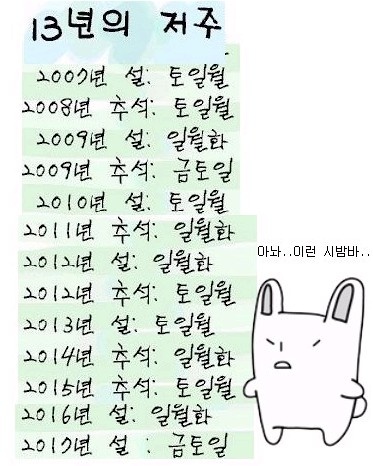 13년의 저주
2007년 설: 토일월
2008년 추석: 토일월
2009년 설: 일월화
2009년 추석: 금토일
2010년 설: 토일월
2011년 추석: 일월화
2012년 설: 일월화
2012년 추석: 토일월
2013년 설: 토일월
2014년 추석: 일월화
2015년 추석: 토일월
2016년 설: 일월화
2017년 설 : 금토일
아놔..이런 시밤바..